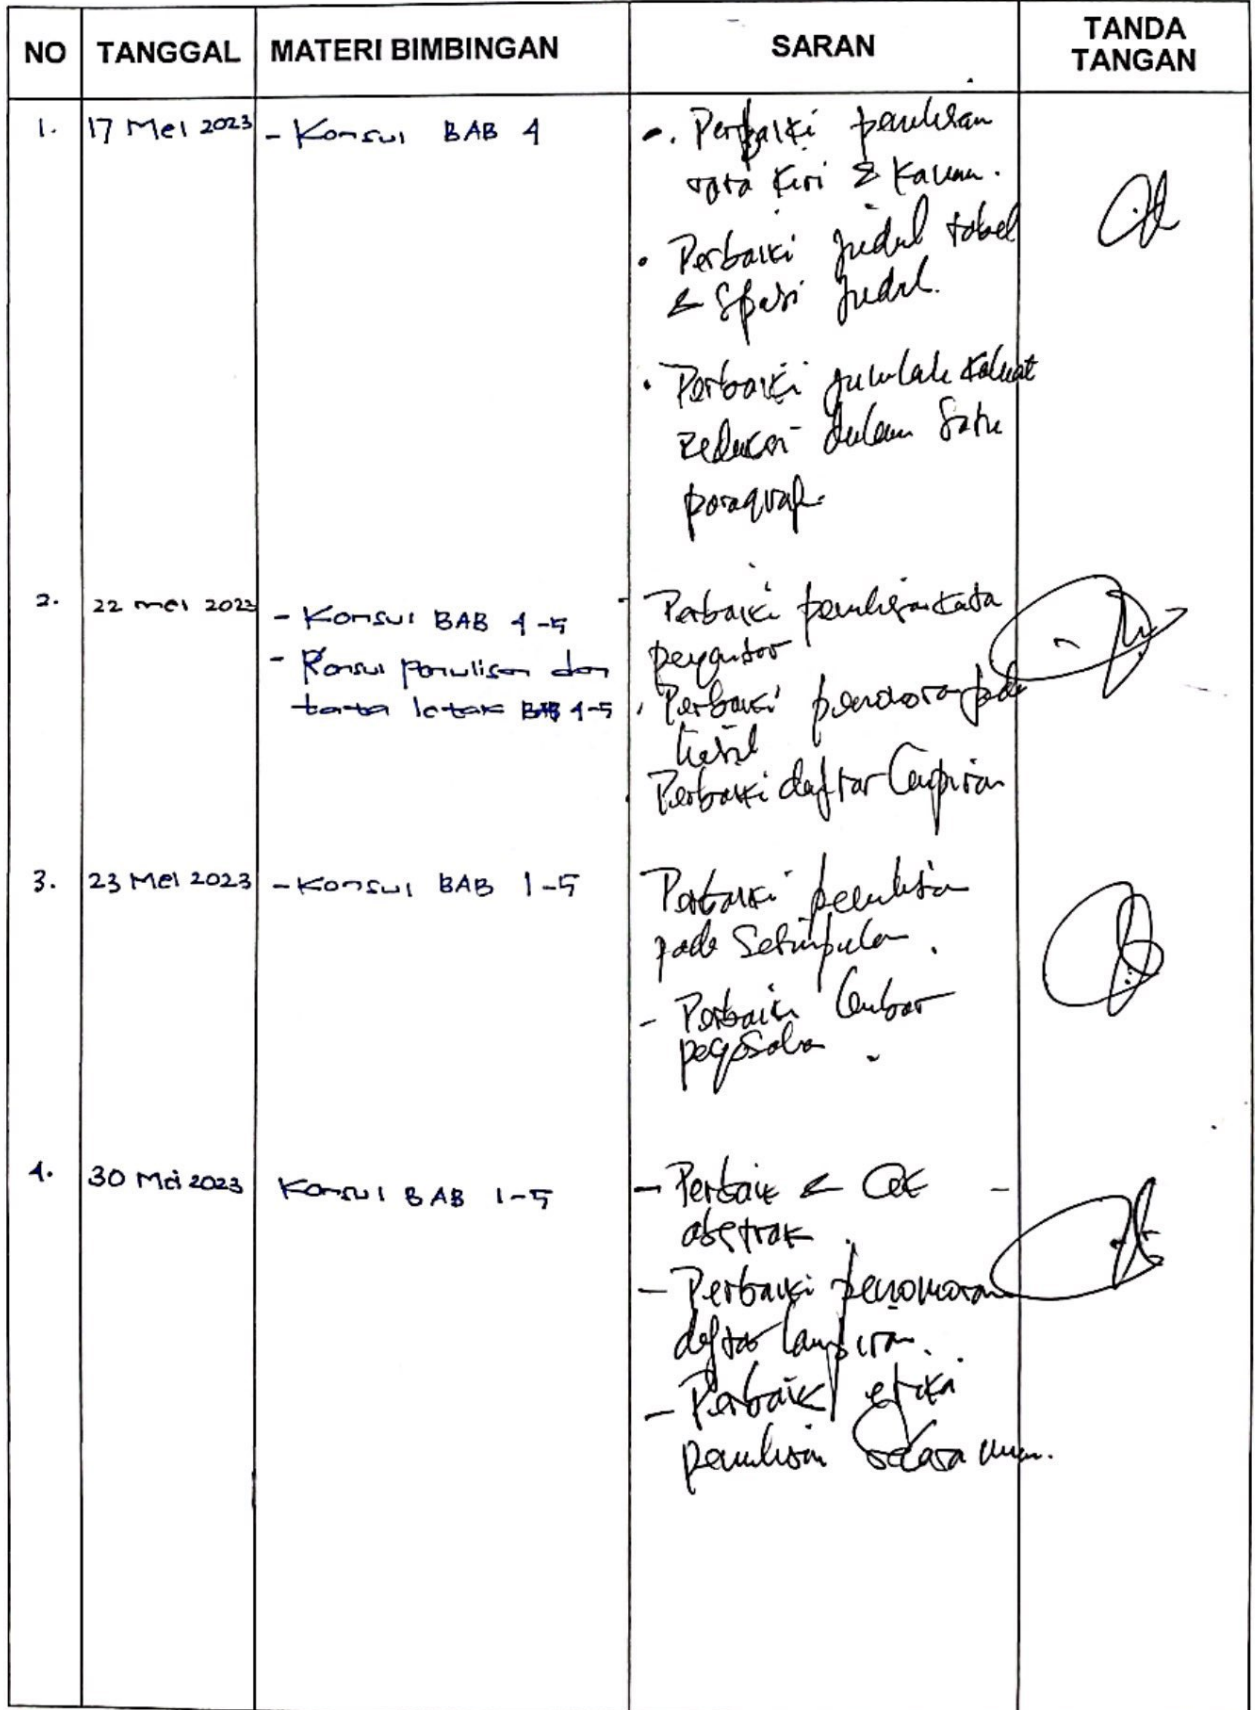 NO TANGGAL MATERI BIMBINGAN SARAN TANDA TANGAN
1. 17 Mei 2023 - Konsul BAB 4
- . Perbaiki penulisan
rata kiri & kanan.
• Perbaiki judul tabel
& Spasi judul.
• Perbaiki jumlah kalimat
redaksi dalam satu
paragraf.
2. 22 mei 2023 - Konsul BAB 4-5
- Konsul penulisan dan
tata letak BAB 4-5
- Perbaiki penulisan kata
pengantar
. Perbaiki penomoran pada
hasil
. Perbaiki daftar lampiran
3. 23 Mei 2023 - Konsul BAB 1-5
Perbaiki penulisan
pada Setimpulan.
- Perbaiki lembar
4. 30 Mei 2023 Konsul BAB 1-5
- Perbaik & Cek
abstrak.
- Perbaiki penomoran
daftar lampiran.
- Perbaiki etika
penulisan secara umum.